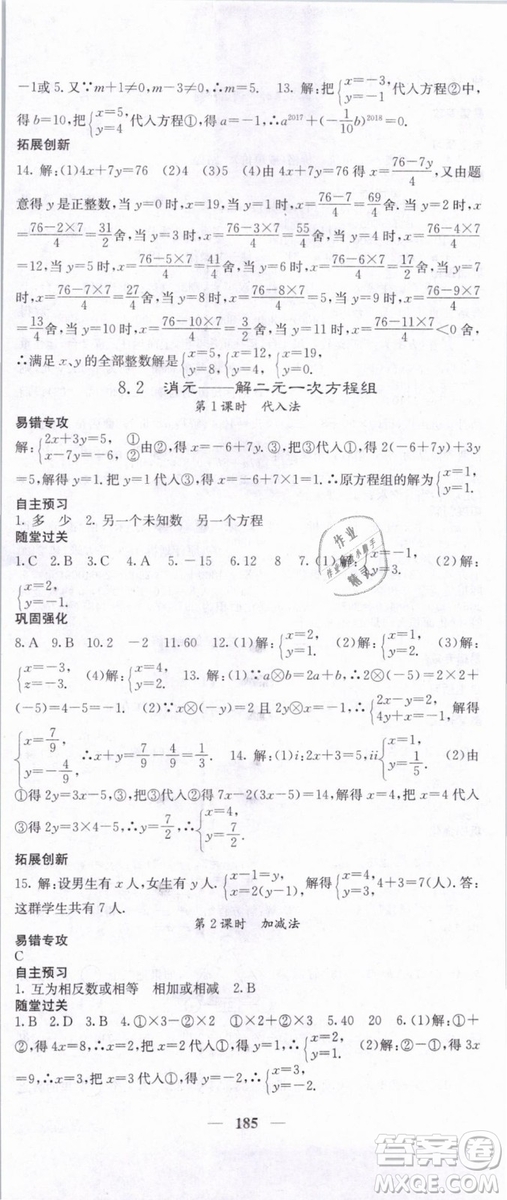 -1或5.又∵m+1≠0,m-3≠0,∴m=5. 13. 解:把{x=-3, y=-1代入方程②中,
得 b=10,把{x=5, y=4代入方程①,得 a=-1,∴a^2017+(-1/10 b)^2018=0.
拓展创新
14. 解:(1)4x+7y=76 (2)4 (3)5 (4)由 4x+7y=76,得 x=(76-7y)/4,又由题
意得 y 是正整数,当 y=0 时,x=19,当 y=1 时,x=(76-1×7)/4=69/4舍,当 y=2 时,
x=(76-2×7)/4=31/2舍,当 y=3 时,x=(76-3×7)/4=55/4舍,当 y=4 时,x=(76-4×7)/4
=12,当 y=5 时,x=(76-5×7)/4=41/4舍,当 y=6 时,x=(76-6×7)/4=17/2舍,当 y=7
时,x=(76-7×7)/4=27/4舍,当 y=8 时,x=(76-8×7)/4=5,当 y=9 时,x=(76-9×7)/4
=13/4舍,当 y=10 时,x=(76-10×7)/4=3/2舍,当 y=11 时,x=(76-11×7)/4<0 舍,
∴满足 x、y 的全部整数解是{x=5, y=8,{x=12, y=4,{x=19, y=0.
8.2 消元——解二元一次方程组
第1课时 代入法
易错专攻
解:{2x+3y=5, ① x-7y=-6, ②由②,得 x=-6+7y.③把③代入①,得 2(-6+7y)+3y
=5,解得 y=1.把 y=1 代入③,得 x=-6+7×1=1.∴原方程组的解为{x=1, y=1.
自主预习
1. 多 少 2. 另一个未知数 另一个方程
随堂过关
1.C 2.B 3.C 4.A 5.-15 6.12 8 7.(1)解:{x=-1, (2)解:
{x=2, y=-1.
巩固强化
8.A 9.B 10.2 -2 11.60 12.(1)解:{x=2, y=1. (2)解:{x=1, y=1. (3)解:
{x=-3, z=-3. (4)解:{x=2, y=-1. 13. 解:∵a⊗b=2a+b,∴2⊗(-5)=2×2+
(-5)=4-5=-1. (2)∵x⊗(-y)=2,且2y⊗x=-1,∴{2x-y=2, 4y+x=-1,解得
{x=7/9, y=-4/9,∴x+y=7/9-4/9=1/3. 14. 解:(1)i:2x+3y=5,ii{x=1, y=1/5. (2)由
①得 2y=3x-5,③,把③代入②,得 7x-2(3x-5)=14,解得 x=4,把 x=4 代入
③,得 2y=3×4-5,解得 y=7/2.∴{x=4, y=7/2.
拓展创新
15. 解:设男生有 x 人,女生有 y 人.{x-1=y, x=2(y-1).解得{x=4, y=3,4+3=7(人).答:
这群学生共有 7 人.
第2课时 加减法
易错专攻
C
自主预习
1. 互为相反数或相等 相加或相减 2.B
随堂过关
1.B 2.D 3.A 4.①×3-②×2 ①×2+②×3 5.40 20 6.(1)解:①+
②,得 4x=8,解得 x=2,把 x=2 代入①,得 y=1,∴{x=2, y=1. (2)解:①+②得 3x
=9,∴x=3,把 x=3 代入②,得 y=-1,∴{x=3, y=-1.
185
答案圈